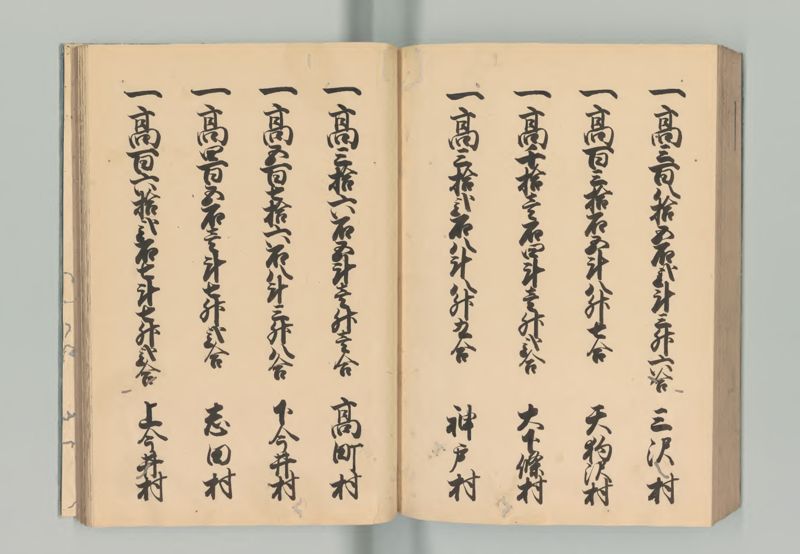 一高三百八拾五石弐斗三升六合 三沢村
一高百三拾石五斗八升七合 天狗沢村
一高七拾壱石四斗壱升弐合 大下條村
一高三拾弐石八斗八升五合 神戸村
一高三拾六石五斗壱升壱合 高町村
一高五百七拾六石八斗三升八合 下今井村
一高四百五石壱斗七升弐合 志田村
一高百六拾弐石七斗七升弐合 上今井村